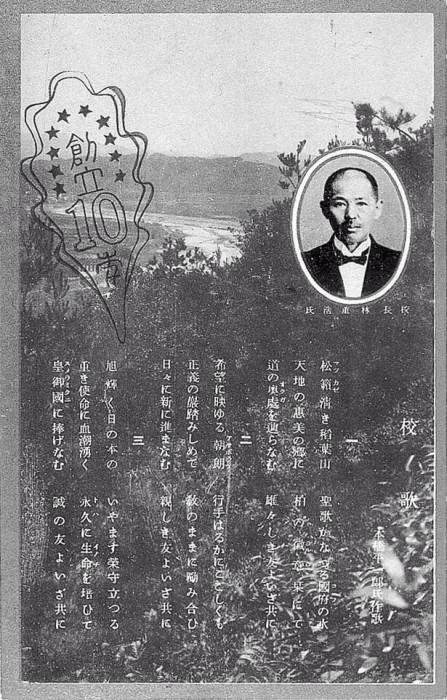 創立10
校長 林重浩氏
校歌
氏作歌
一
松籟清き稲葉山 聖歌かなづる國府の水
天地の恵美の郷に 柏の徽章を栞にて
道の奥處を辿らなむ 雄々しき友よいざ共に
二
希望に映ゆる朝朗 行手はるかにこごしくも
正義の巌踏みしめて 教のままに励み合ひ
日々に新に進まなむ 親しき友よいざ共に
三
旭輝く日の本の いやます榮守立つる
重き使命に血潮湧く 永久に生命を培ひて
皇御國に捧げなむ 誠の友よいざ共に